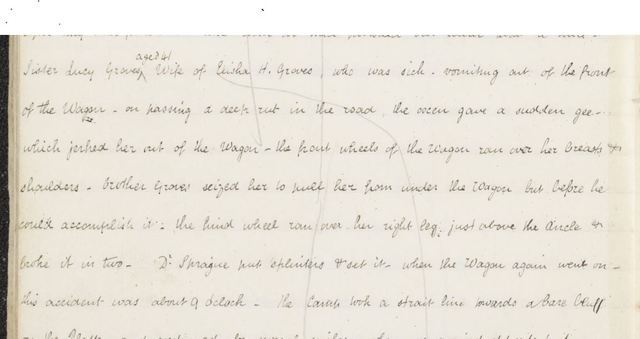 Sister Lucy Groves, aged 41 Wife of Elisha H. Groves, who was sick - vomiting out of the front
of the Wagon - on passing a deep rut in the road, the oxen gave a sudden gee -
which jerked her out of the Wagon - the front wheels of the Wagon ran over her breasts &
shoulders - brother Groves seized her to pull her from under the Wagon but before he
could accomplish it: the hind wheel ran over her right leg, just above the Ancle &
broke it in two - Dr Sprague put splinters & set it - when the Wagon again went on -
this accident was about 9 oclock - the Camp took a strait line towards a bare bluff